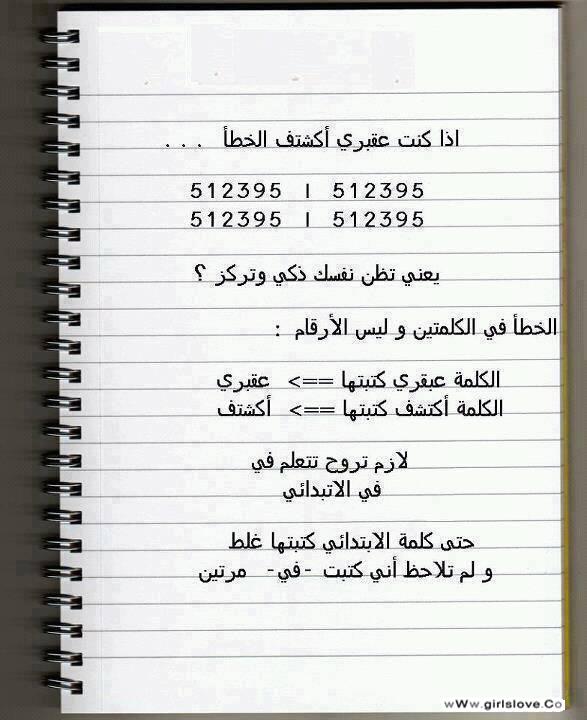 اذا كنت عقبري أكشتف الخطأ . . .
512395 | 512395
512395 | 512395
يعني تظن نفسك ذكي وتركز ؟
الخطأ في الكلمتين و ليس الأرقام :
الكلمة عبقري كتبتها ==> عقبري
الكلمة أكتشف كتبتها ==> أكشتف
لازم تروح تتعلم في
في الاتبدائي
حتى كلمة الابتدائي كتبتها غلط
و لم تلاحظ أني كتبت -في- مرتين
wWw.girlslove.Co